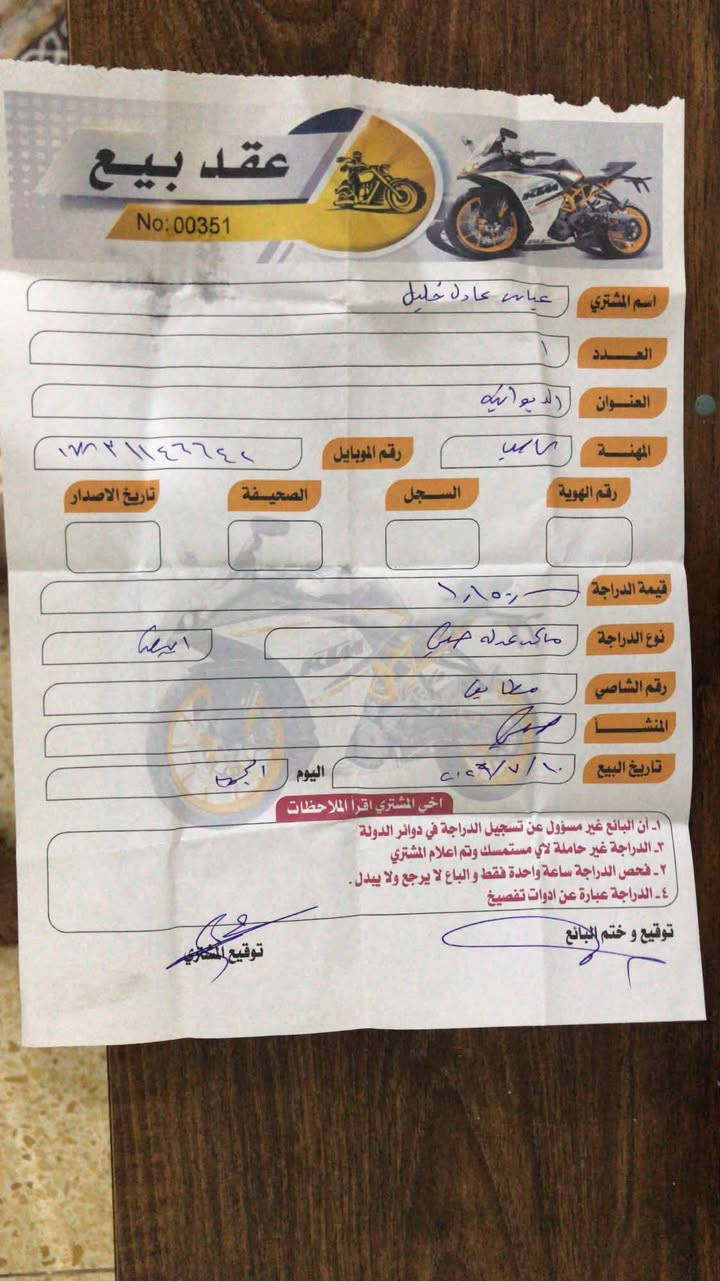 عقد بيع
No: 00351
KTM
اسم المشتري عباس عادل خليل
العـــدد ١
العنـــوان الديوانيه
المهنـة كاسب رقم الموبايل
رقم الهوية السجل الصحيفة تاريخ الاصدار
قيمة الدراجة
نوع الدراجة ابيض
رقم الشاصي مطابق
المنشـــأ صيني
تاريخ البيع اليوم الجمعة
اخي المشتري اقرأ الملاحظات
١- أن البائع غير مسؤول عن تسجيل الدراجة في دوائر الدولة
٣- الدراجة غير حاملة لاي مستمسك وتم اعلام المشتري
٢- فحص الدراجة ساعة واحدة فقط و الباع لا يرجع ولا يبدل .
٤- الدراجة عبارة عن ادوات تفصيخ
توقيع و ختم البائع توقيع المشتري